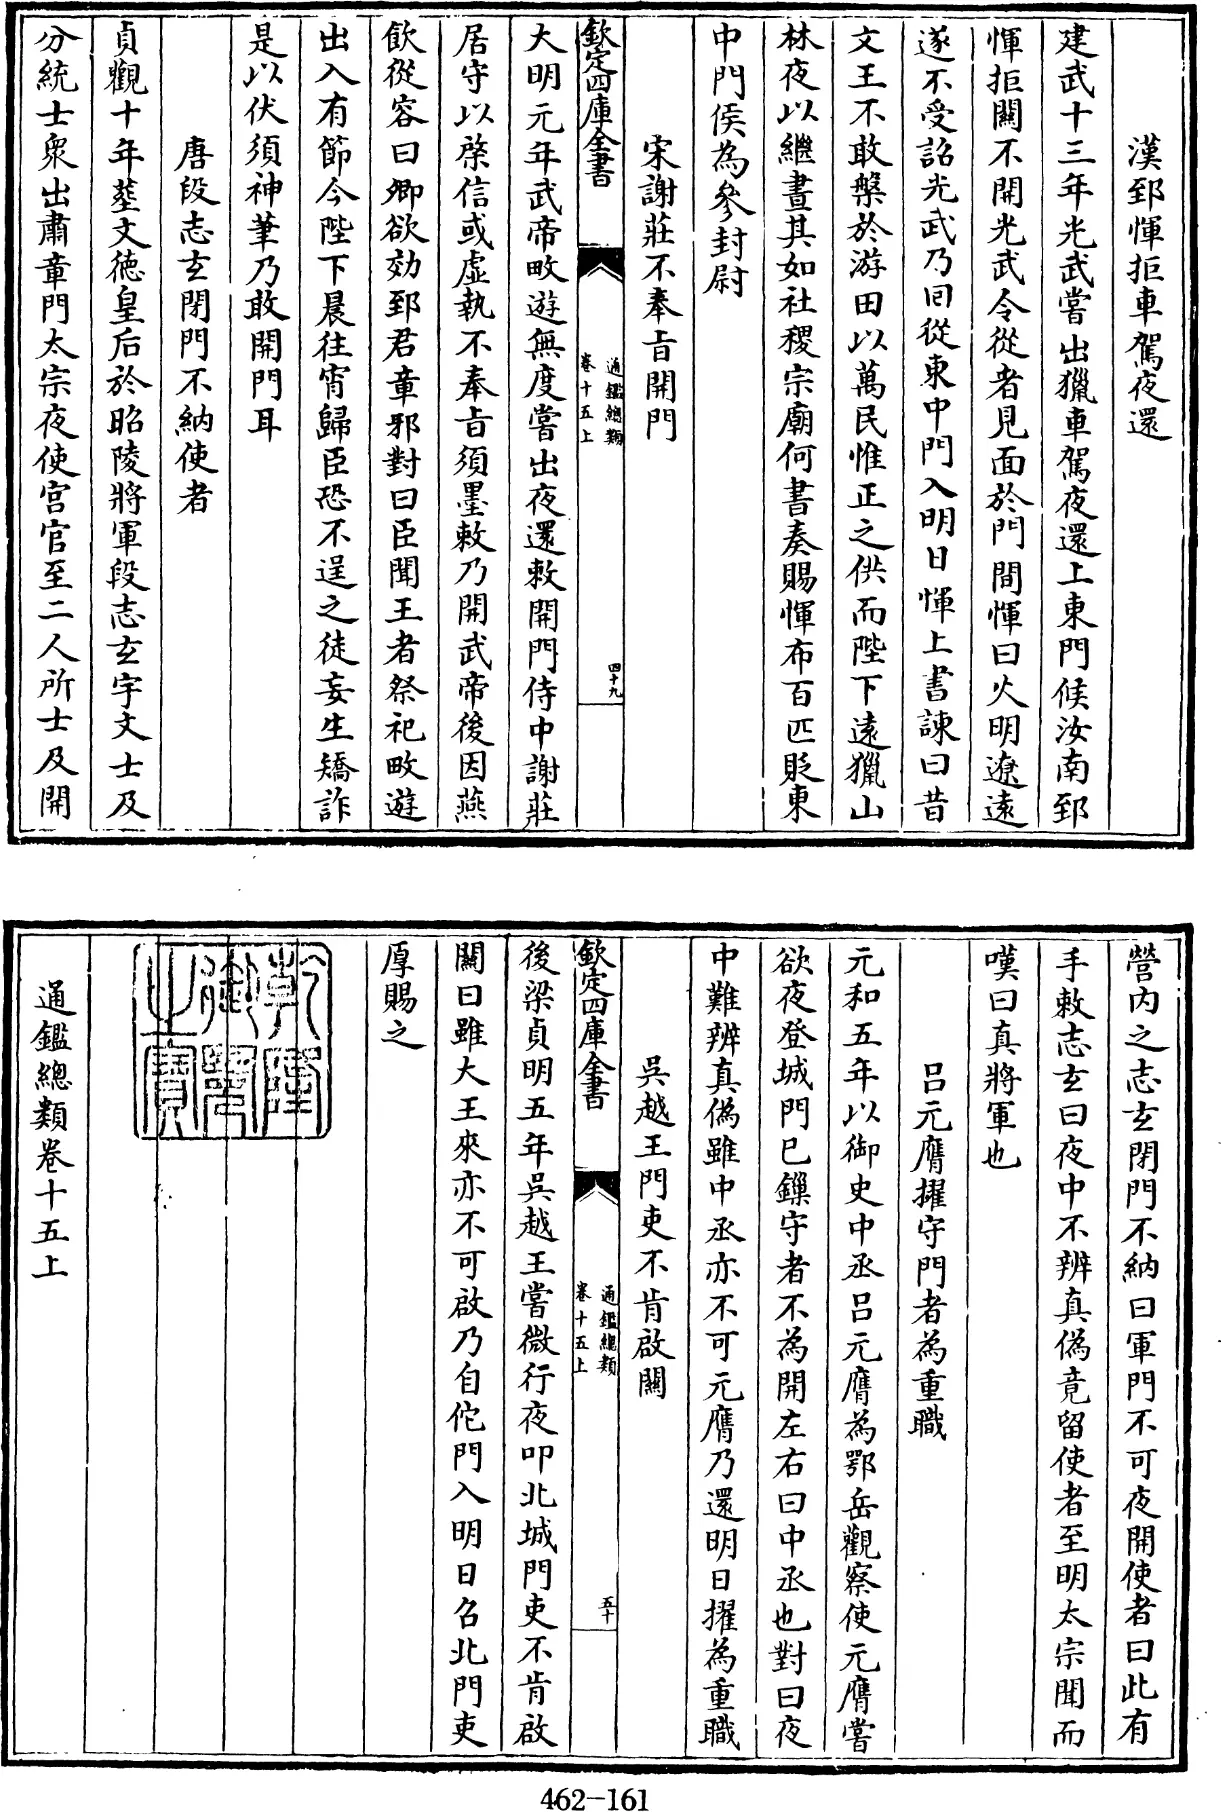 漢郅惲拒車駕夜還
建武十三年光武嘗出獵車駕夜還上東門候汝南郅
惲拒關不開光武令從者見面於門間惲曰火明遼遠
遂不受詔光武乃囘從東中門入明日惲上書諫曰昔
文王不敢槃於游田以萬民惟正之供而陛下遠獵山
林夜以繼晝其如社稷宗廟何書奏賜惲布百匹貶東
中門侯為參封尉
宋謝莊不奉旨開門
欽定四庫全書
通鑑總類
卷十五上
四十九
大明元年武帝畋遊無度嘗出夜還敕開門侍中謝莊
居守以棨信或虛執不奉旨須墨敕乃開武帝後因燕
飲從容曰卿欲効郅君章邪對曰臣聞王者祭祀畋遊
出入有節今陛下晨往宵歸臣恐不逞之徒妄生矯詐
是以伏須神筆乃敢開門耳
唐段志玄閉門不納使者
貞觀十年葬文徳皇后於昭陵將軍段志玄宇文士及
分統士衆出肅章門太宗夜使宫官至二人所士及開
營内之志玄閉門不納曰軍門不可夜開使者曰此有
手敕志玄曰夜中不辨真偽竟留使者至明太宗聞而
嘆曰真將軍也
吕元膺擢守門者為重職
元和五年以御史中丞吕元膺為鄂岳觀察使元膺嘗
欲夜登城門已鏁守者不為開左右曰中丞也對曰夜
中難辨真偽雖中丞亦不可元膺乃還明日擢為重職
吳越王門吏不肯啟關
欽定四庫全書
通鑑總類
卷十五上
五十
後梁貞明五年吳越王嘗微行夜叩北城門吏不肯啟
關曰雖大王來亦不可啟乃自佗門入明日召北門吏
厚賜之
乾隆
御覽
之寶
通鑑總類卷十五上
462-161